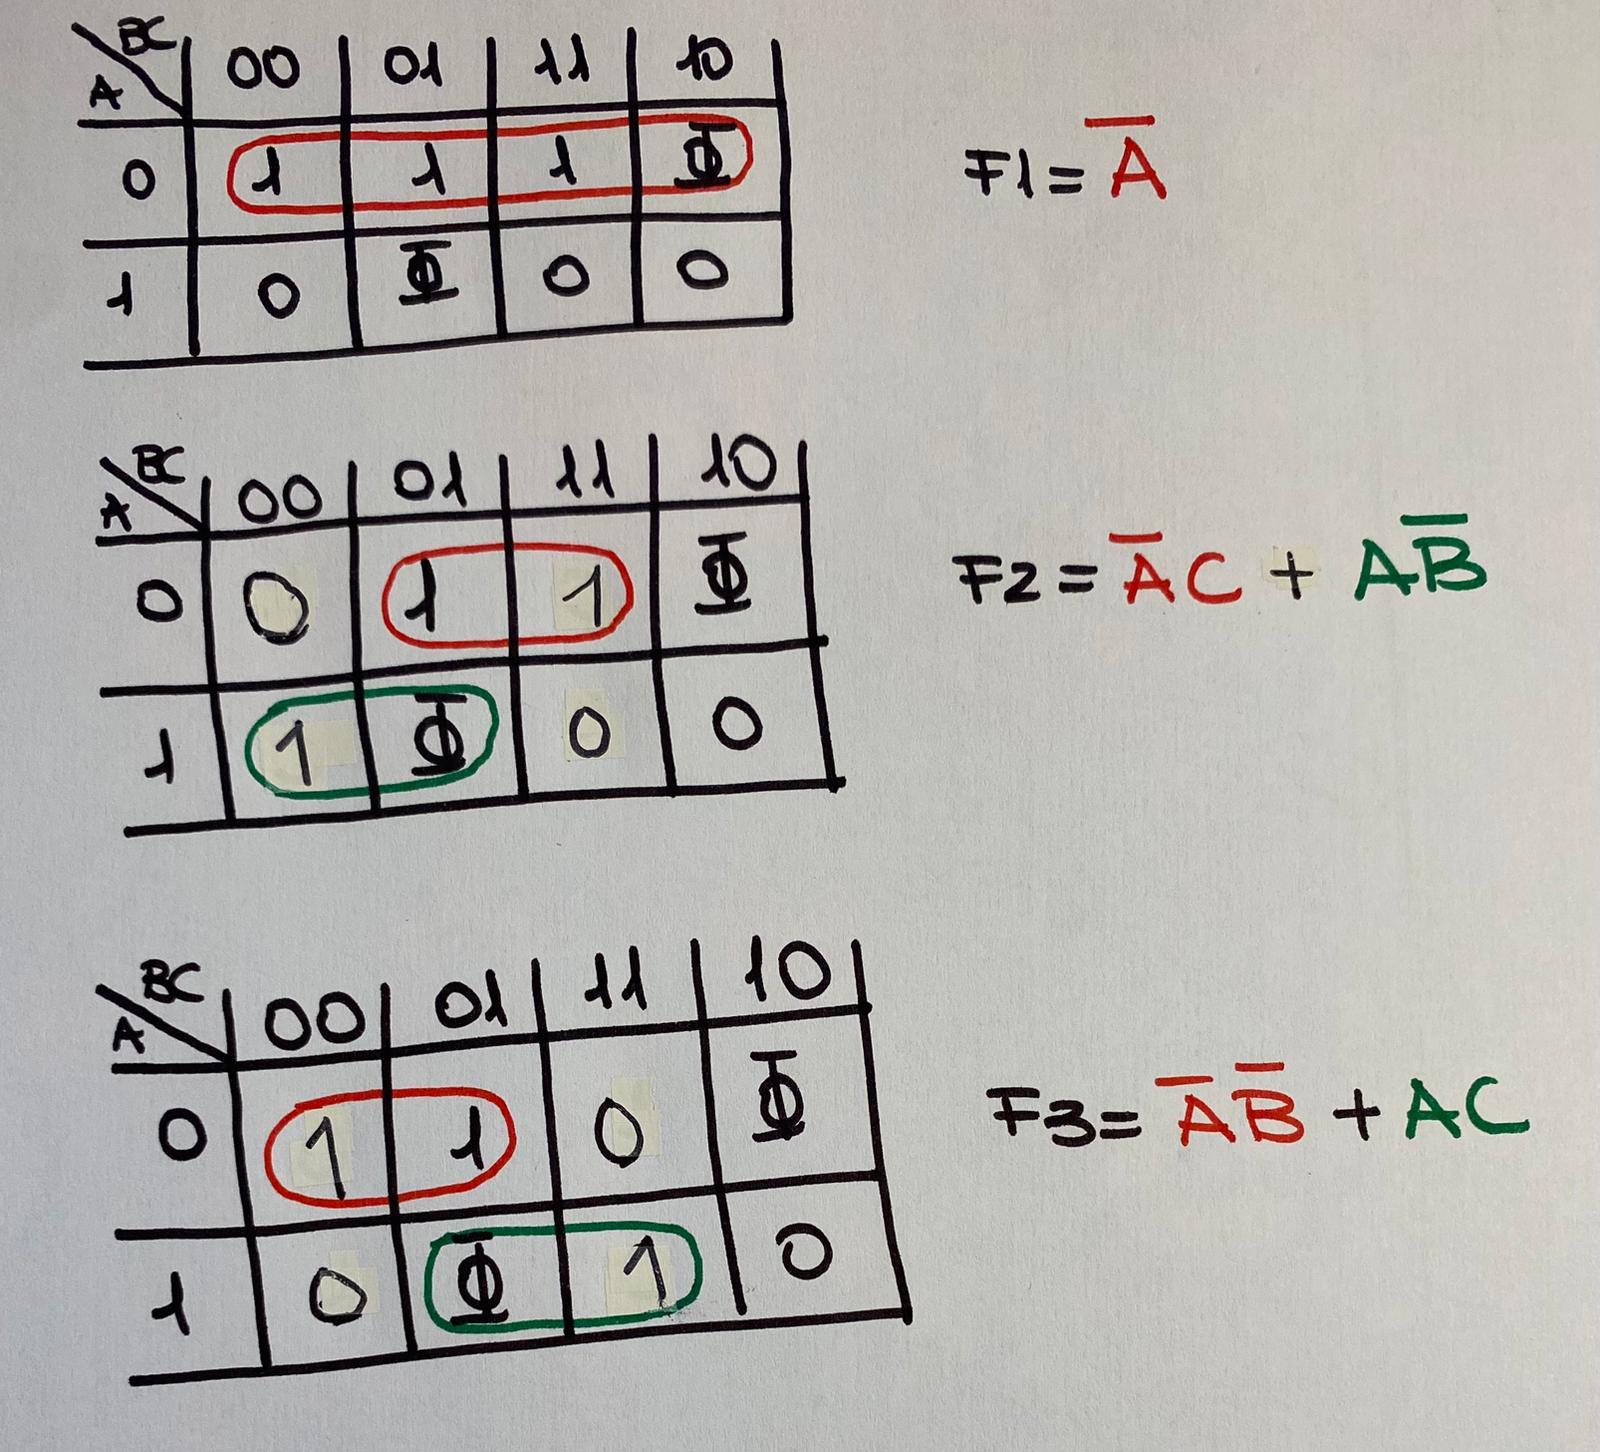 BC
A 00 01 11 10
0 1 1 1 Φ
1 0 Φ 0 0
F1 = A̅
BC
A 00 01 11 10
0 0 1 1 Φ
1 1 Φ 0 0
F2 = A̅C + AB̅
BC
A 00 01 11 10
0 1 1 0 Φ
1 0 Φ 1 0
F3 = A̅B̅ + AC